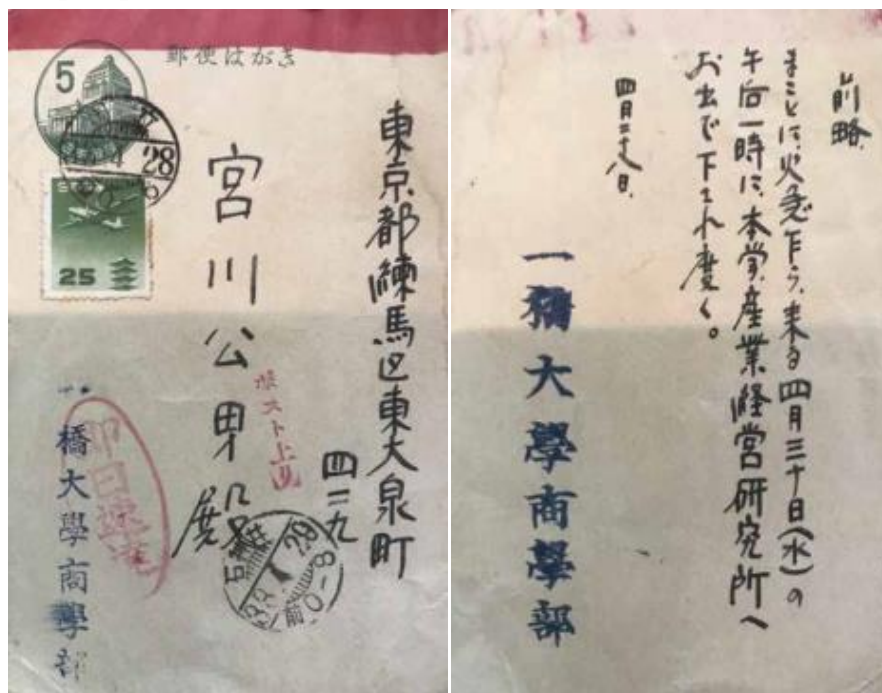 郵便はがき
5
28
25
東京都練馬区東大泉町
四二九
宮川公男殿
ポスト上見
即日速達
一橋大學商學部
石神井
29
前0-8
前略、
まことに火急乍ら、来る四月三十日(水)の
午后一時に、本学、産業経営研究所へ
お出で下され度く。
四月二十八日、
一橋大學商學部